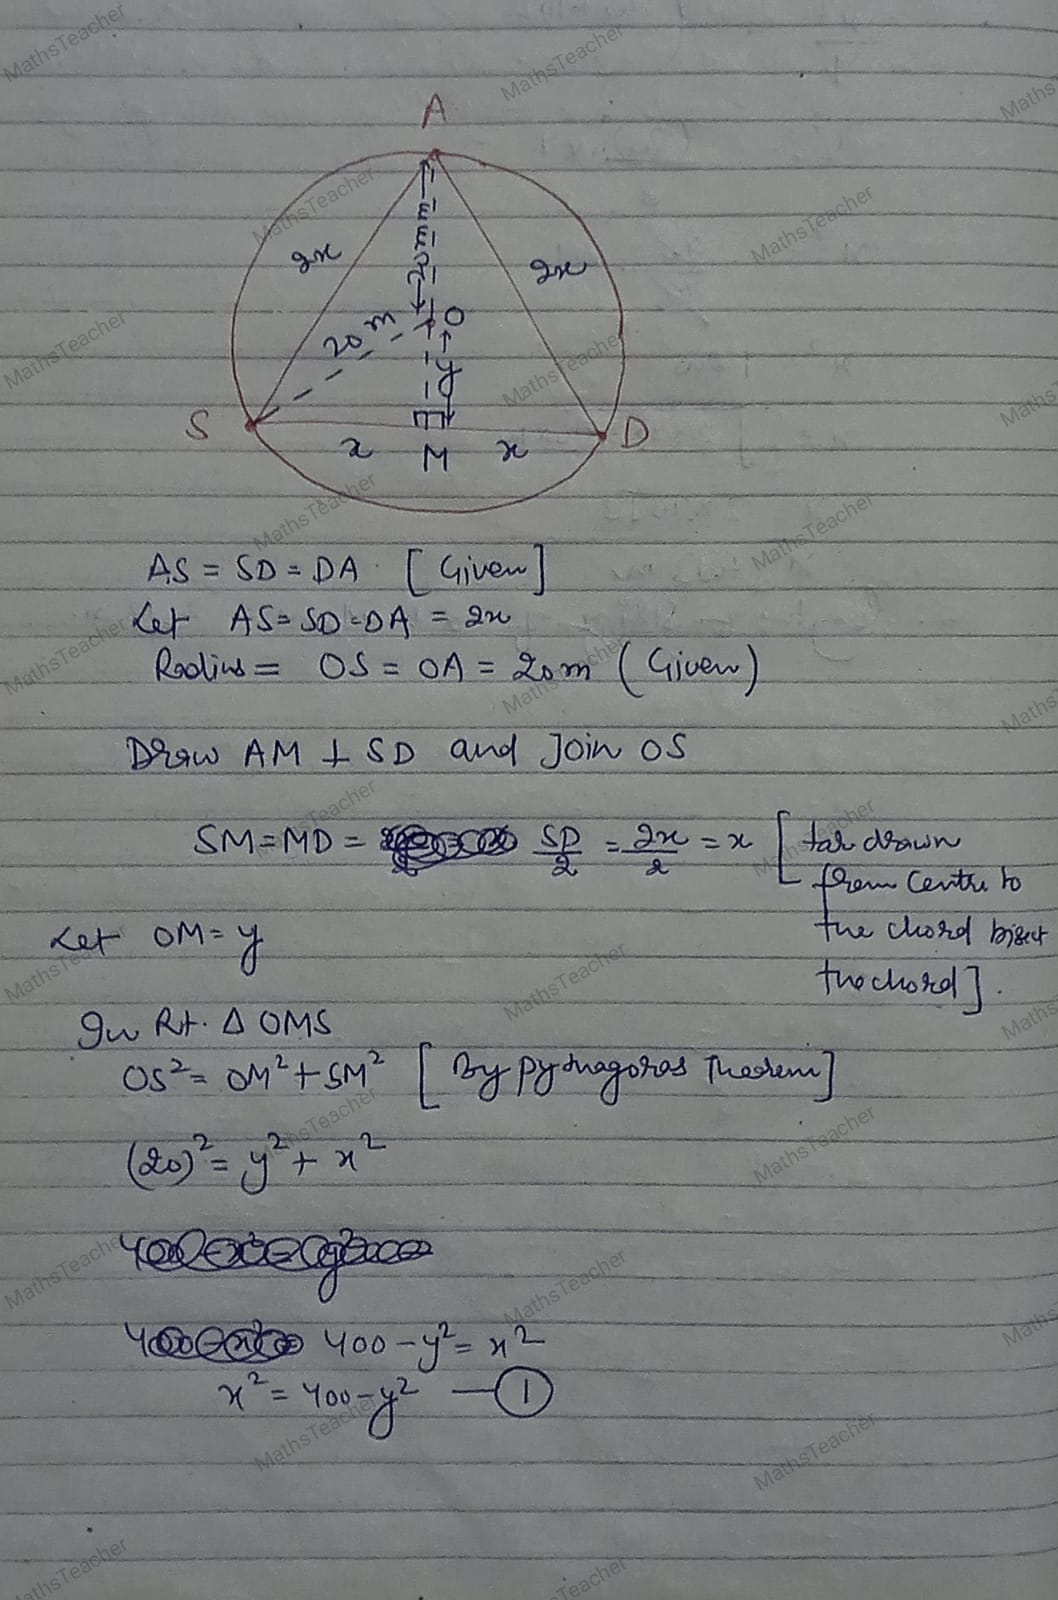 A
2x
2x
20m
20 m
O
y
S
D
x
M
x
AS = SD = DA [Given]
Let AS = SD = DA = 2x
Radius = OS = OA = 20m (Given)
Draw AM ⊥ SD and Join OS
SM = MD = SD/2 = 2x/2 = x [ drawn
from Centre to
the chord bisect
the chord].
Let OM = y
In Rt. Δ OMS
OS² = OM² + SM² [By pythagoras Theorem]
(20)² = y² + x²
400 - y² = x²
x² = 400 - y² — ①
MathsTeacher